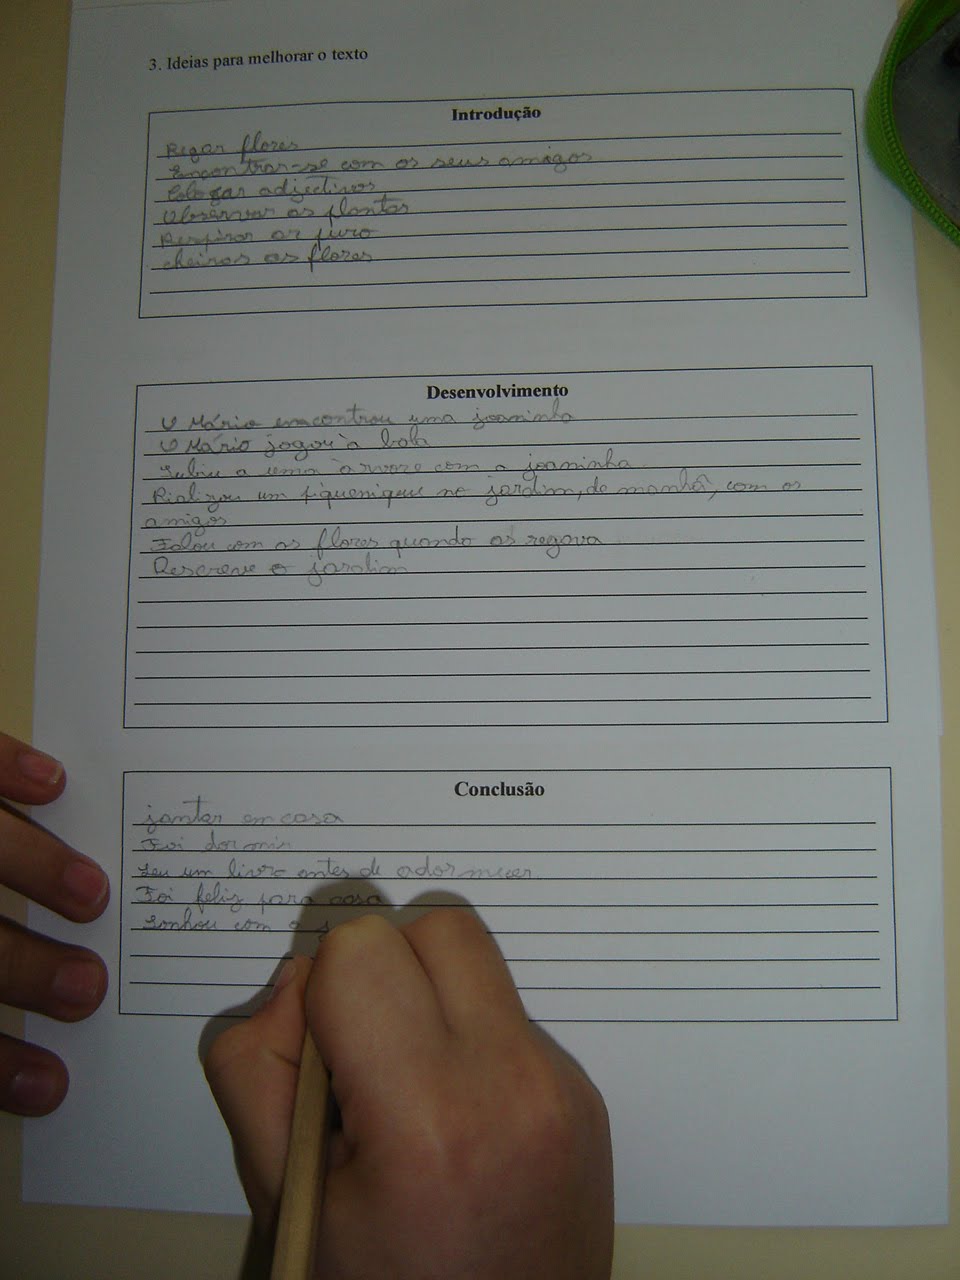 3. Ideias para melhorar o texto
Introdução
Regar flores
Encontrar-se com os seus amigos
Colocar adjectivos
Observar as plantas
Respirar ar puro
cheiras as flores
Desenvolvimento
O Mário encontrou uma joaninha
O Mário jogou à bola
Subiu a uma àrvore com a joaninha
Rializou um piquenique no jardim, de manhã, com os
amigos
Falou com as flores quando as regava
Descreve o jardim
Conclusão
jantar em casa
Foi dormir
Leu um livro antes de adormecer.
Foi feliz para casa
Sonhou com o